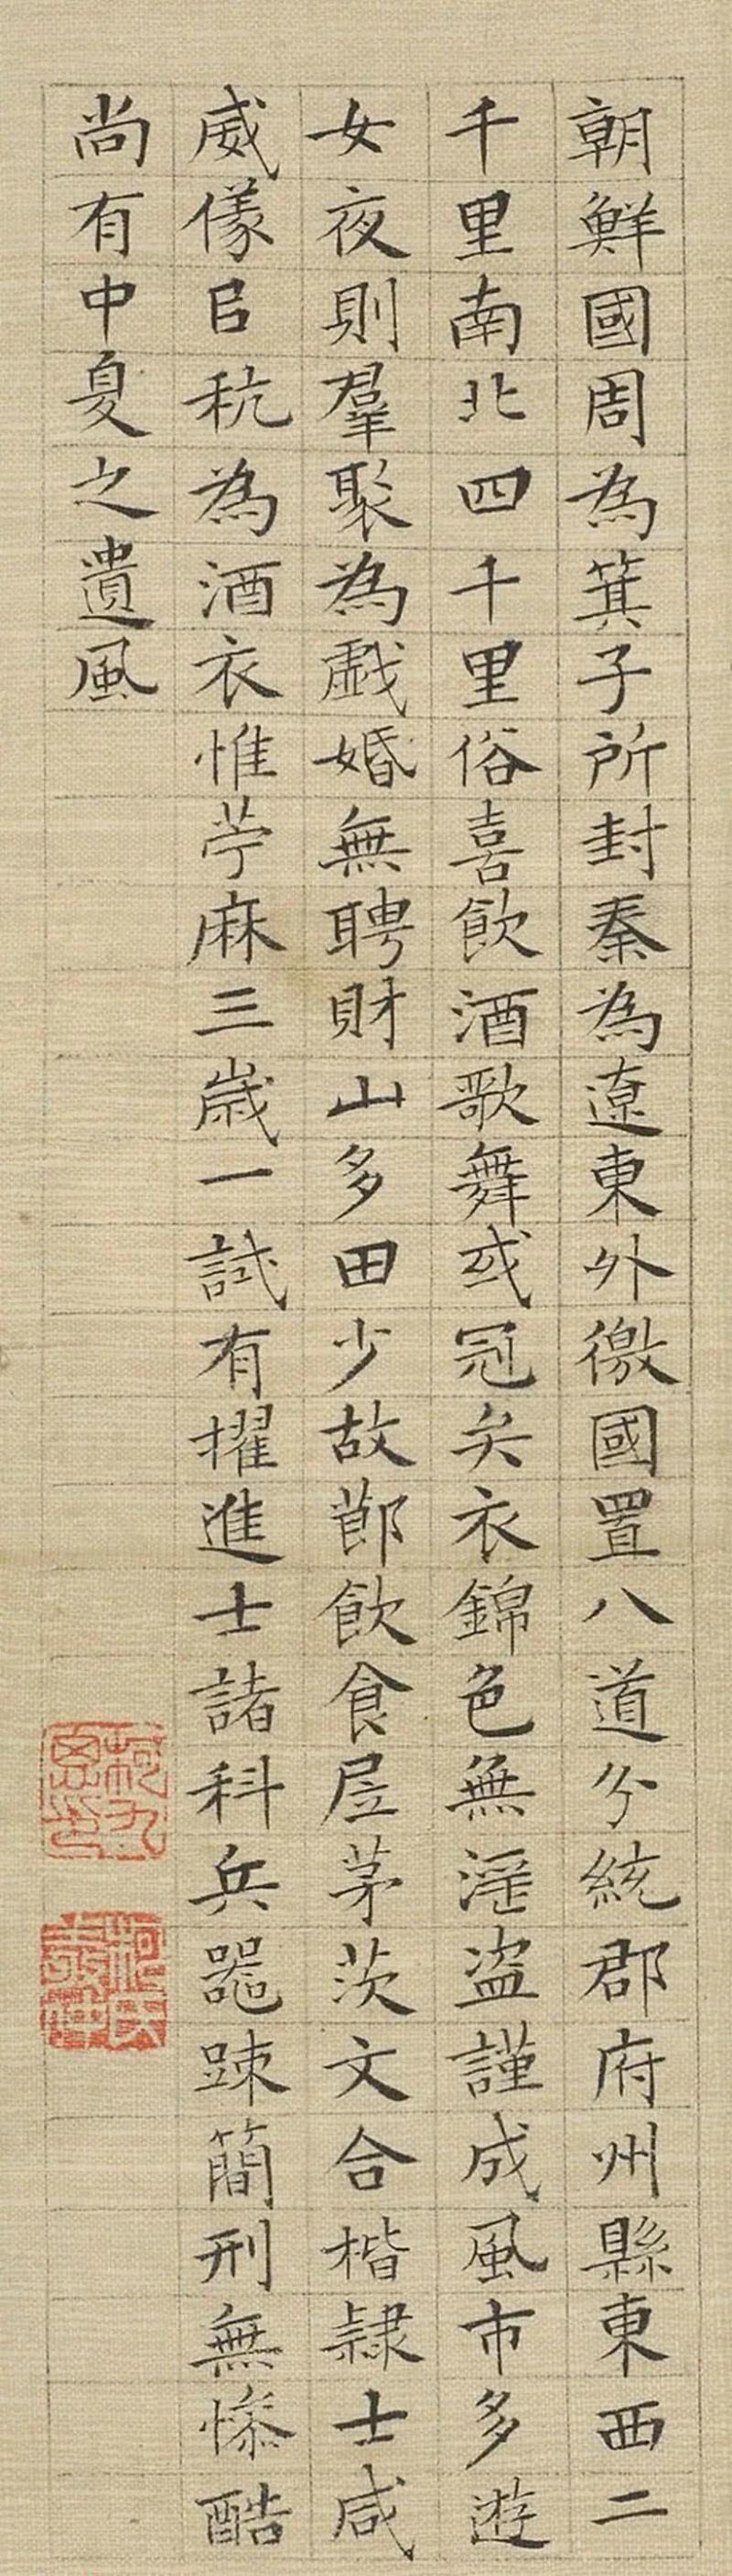 朝鮮國周為箕子所封秦為遼東外徼國置八道分統郡府州縣東西二
千里南北四千里俗喜飲酒歌舞或冠弁衣錦色無淫盜謹成風市多遊
女夜則羣聚為戯婚無聘財山多田少故莭飲食屋茅茨文合楷隸士咸
威儀㠯秔為酒衣惟苧麻三歳一試有擢進士諸科兵噐踈簡刑無慘酷
尚有中夏之遺風
柯九思印
柯氏敬仲